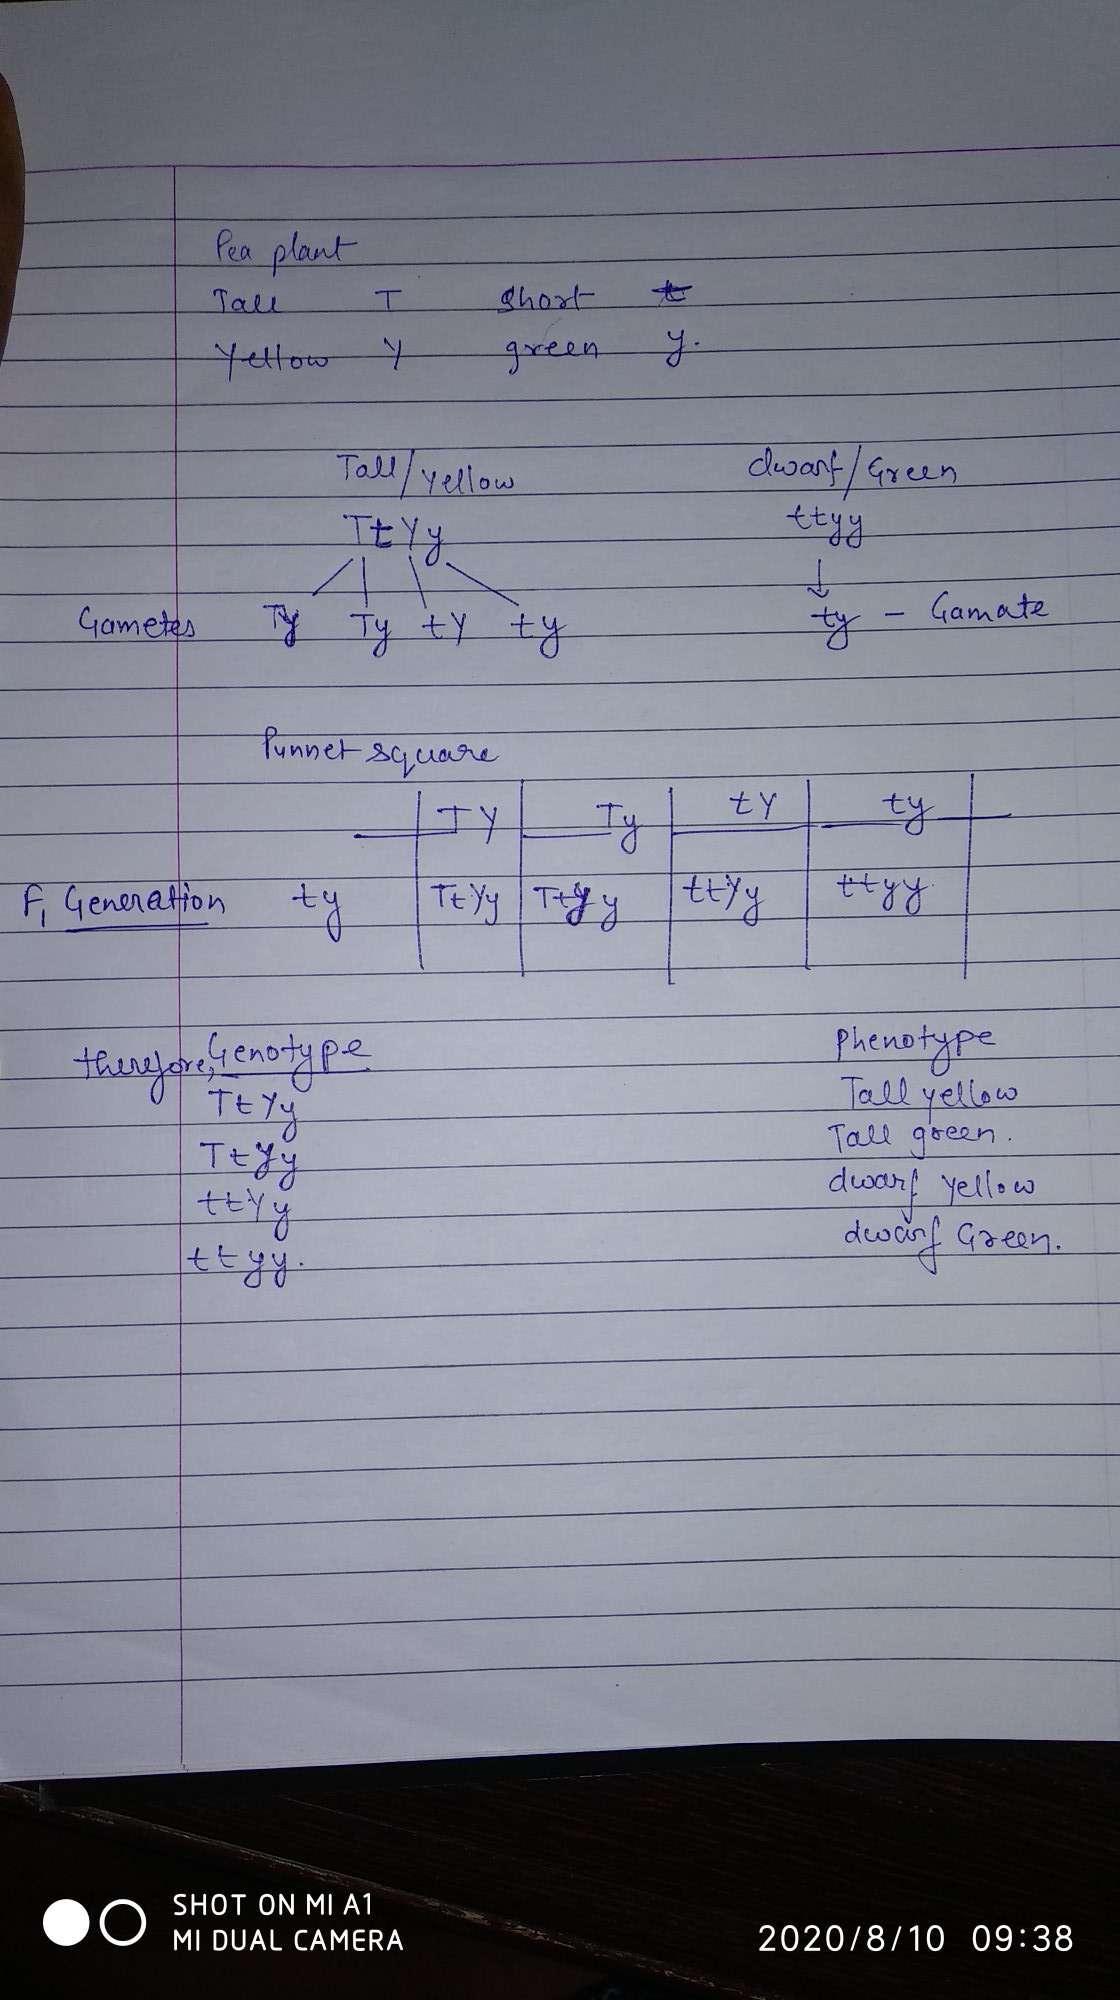 Pea plant
Tall T short t
Yellow Y green y.
Tall/yellow dwarf/Green
TtYy ttyy
Gametes Ty Ty tY ty ty - Gamate
Punnet square
TY Ty tY ty
F1 Generation ty TtYy Ttyy ttYy ttyy
therefore, Genotype Phenotype
TtYy Tall yellow
Ttyy Tall green.
ttYy dwarf yellow
ttyy. dwarf Green.
SHOT ON MI A1
MI DUAL CAMERA
2020/8/10 09:38